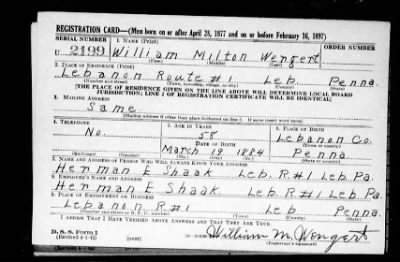 REGISTRATION CARD—(Men born on or after April 28, 1877 and on or before February 16, 1897)
SERIAL NUMBER 1. NAME (Print) ORDER NUMBER
U 2199 William Milton Wengert
(First) (Middle) (Last)
2. PLACE OF RESIDENCE (Print)
Lebanon Route #1 Leb. Penna.
[THE PLACE OF RESIDENCE GIVEN ON THE LINE ABOVE WILL DETERMINE LOCAL BOARD
JURISDICTION; LINE 2 OF REGISTRATION CERTIFICATE WILL BE IDENTICAL]
3. MAILING ADDRESS
Same
[Mailing address if other than place indicated on line 2. If same insert word same]
4. TELEPHONE 5. AGE IN YEARS 6. PLACE OF BIRTH
No. 58 Lebanon Co.
DATE OF BIRTH
March 19 1884 Penna.
7. NAME AND ADDRESS OF PERSON WHO WILL ALWAYS KNOW YOUR ADDRESS
Herman E Shaak Leb. R#1 Leb. Pa.
8. EMPLOYER'S NAME AND ADDRESS
Herman E Shaak Leb. R.#1 Leb. Pa.
9. PLACE OF EMPLOYMENT OR BUSINESS
Lebanon R#1 Leb Penna.
I AFFIRM THAT I HAVE VERIFIED ABOVE ANSWERS AND THAT THEY ARE TRUE.
D. S. S. Form 1
(Revised 4-1-42)
William M. Wengert
(Registrant's signature)